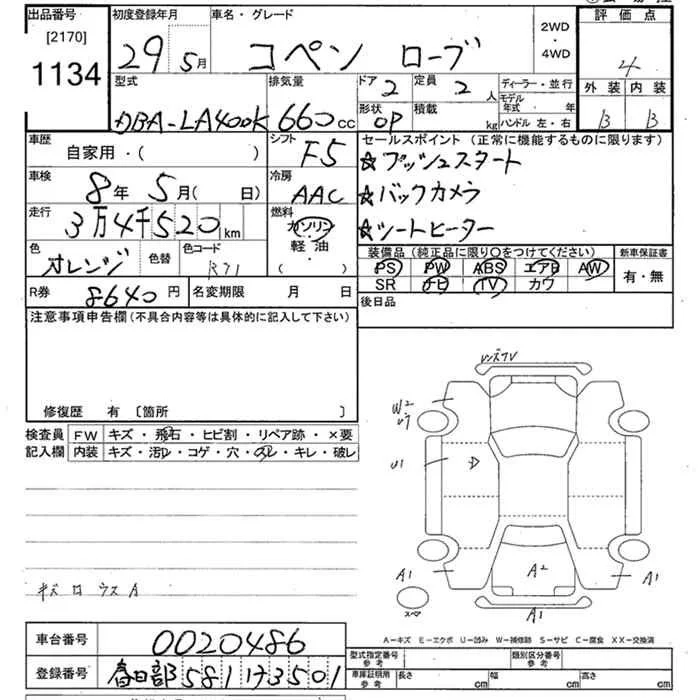 出品番号 初度登録年月 車名・グレード 2WD・4WD 評価点
[2170]
1134 29 5月 コペン ローブ 4
型式 排気量 ドア 2 定員 2人 ディーラー・並行 外装 内装
DBA-LA400K 660cc 形状 OP 積載 kg モデル年式 年 ハンドル 左・右 B B
車歴 シフト セールスポイント (正常に機能するものに限ります)
自家用・( ) F5 ☆プッシュスタート
車検 8年 5月( 日) 冷房 AAC ☆バックカメラ
走行 3万4千520km 燃料 ガソリン ☆シートヒーター
軽油・( )
色 オレンジ 色替 色コード R71 装備品(純正品に限り○をつけてください) 新車保証書
PS PW ABS エアB AW 有・無
SR ナビ TV カワ
R券 8640円 名変期限 月 日 後日品
注意事項申告欄(不具合内容等は具体的に記入して下さい)
修復歴 有 〔箇所 〕
検査員 FW キズ・飛石・ヒビ割・リペア跡・×要
記入欄 内装 キズ・汚レ・コゲ・穴・のレ・キレ・破レ
W2
U1
A1
A2
A1
スペア
A1
A-キズ E-エクボ U-凹み W-補修跡 S-サビ C-腐食 XX-交換済
車台番号 0020486 型式指定番号 参考 類別区分番号 参考
登録番号 春日部 581 け3501 車庫証明用 参考 長さ cm 幅 cm 高さ cm